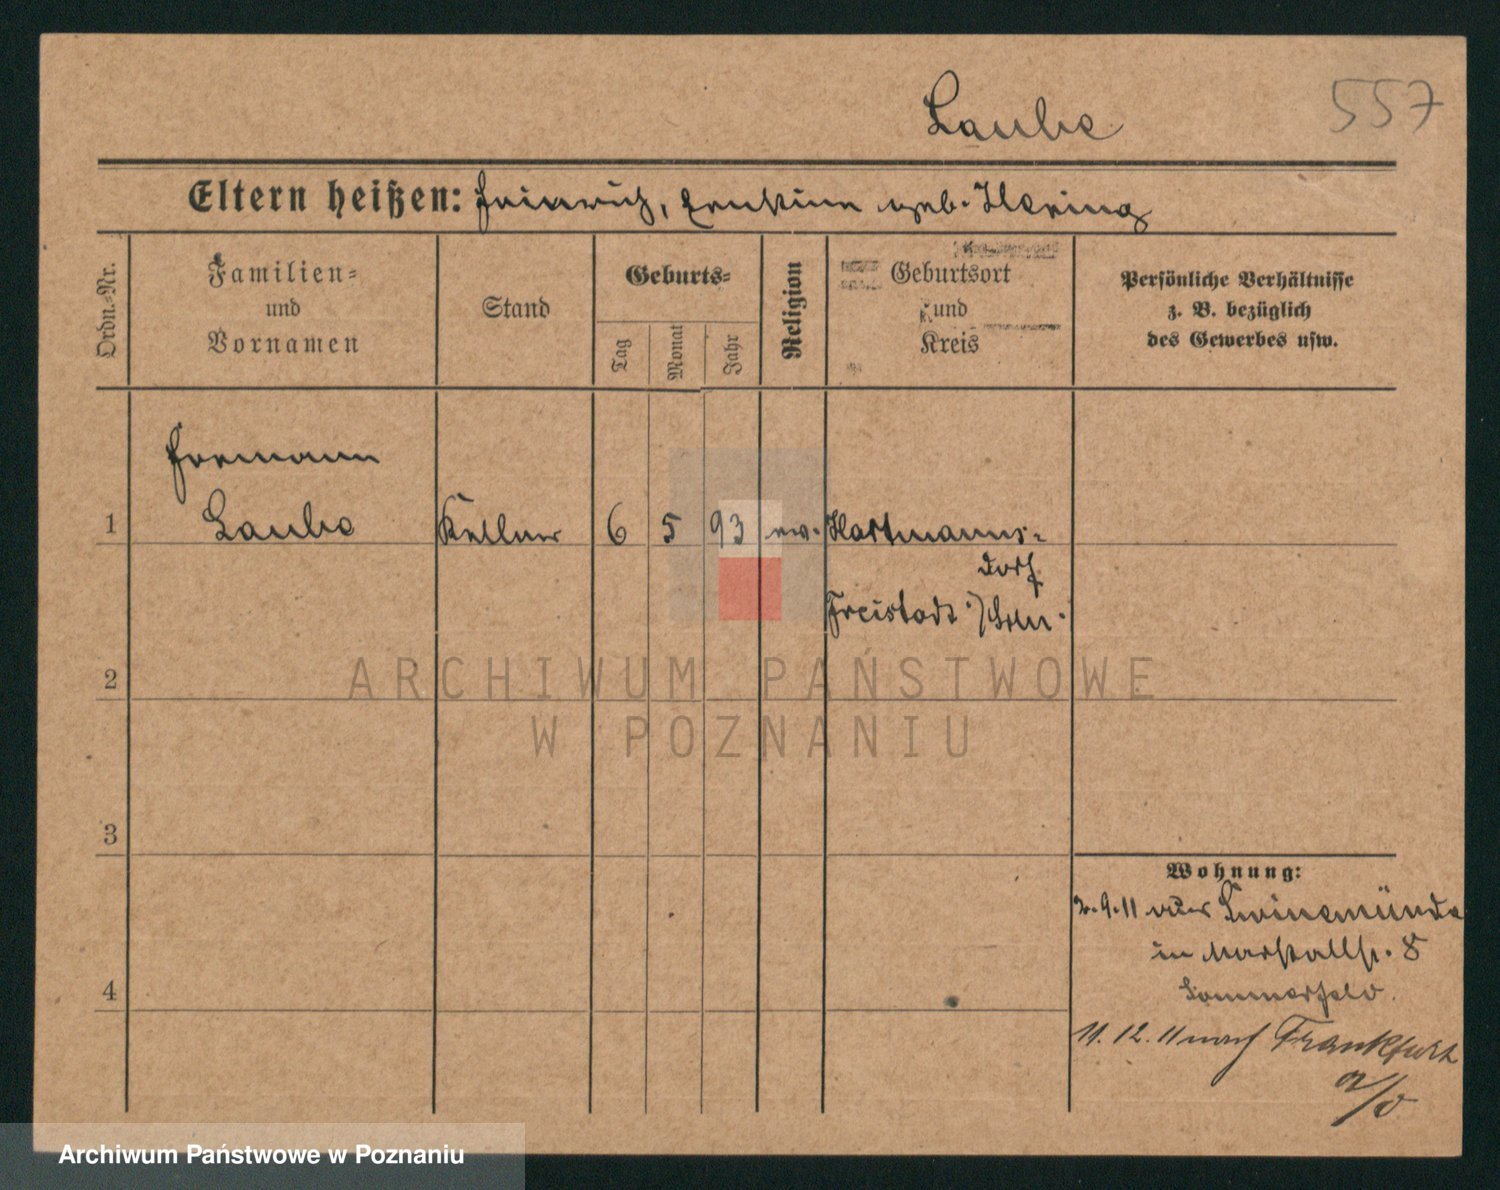 Laube
557
Eltern heißen: Heinrich, Ernstine geb. Hering
Ordn.-Nr.
Familien- und Vornamen
Stand
Geburts-
Tag
Monat
Jahr
Religion
Geburtsort und Kreis
Persönliche Verhältnisse
z. B. bezüglich
des Gewerbes usw.
Hermann
1 Laube Kellner 6 5 93 ev. Hartmanns-
dorf
Freistadt
2
ARCHIWUM PAŃSTWOWE
W POZNANIU
3
Wohnung:
2.9.11 aus Swinemünde
in Marstallstr. 8
4
Sommerfeld.
11.12.11 nach Frankfurt
a/O
Archiwum Państwowe w Poznaniu